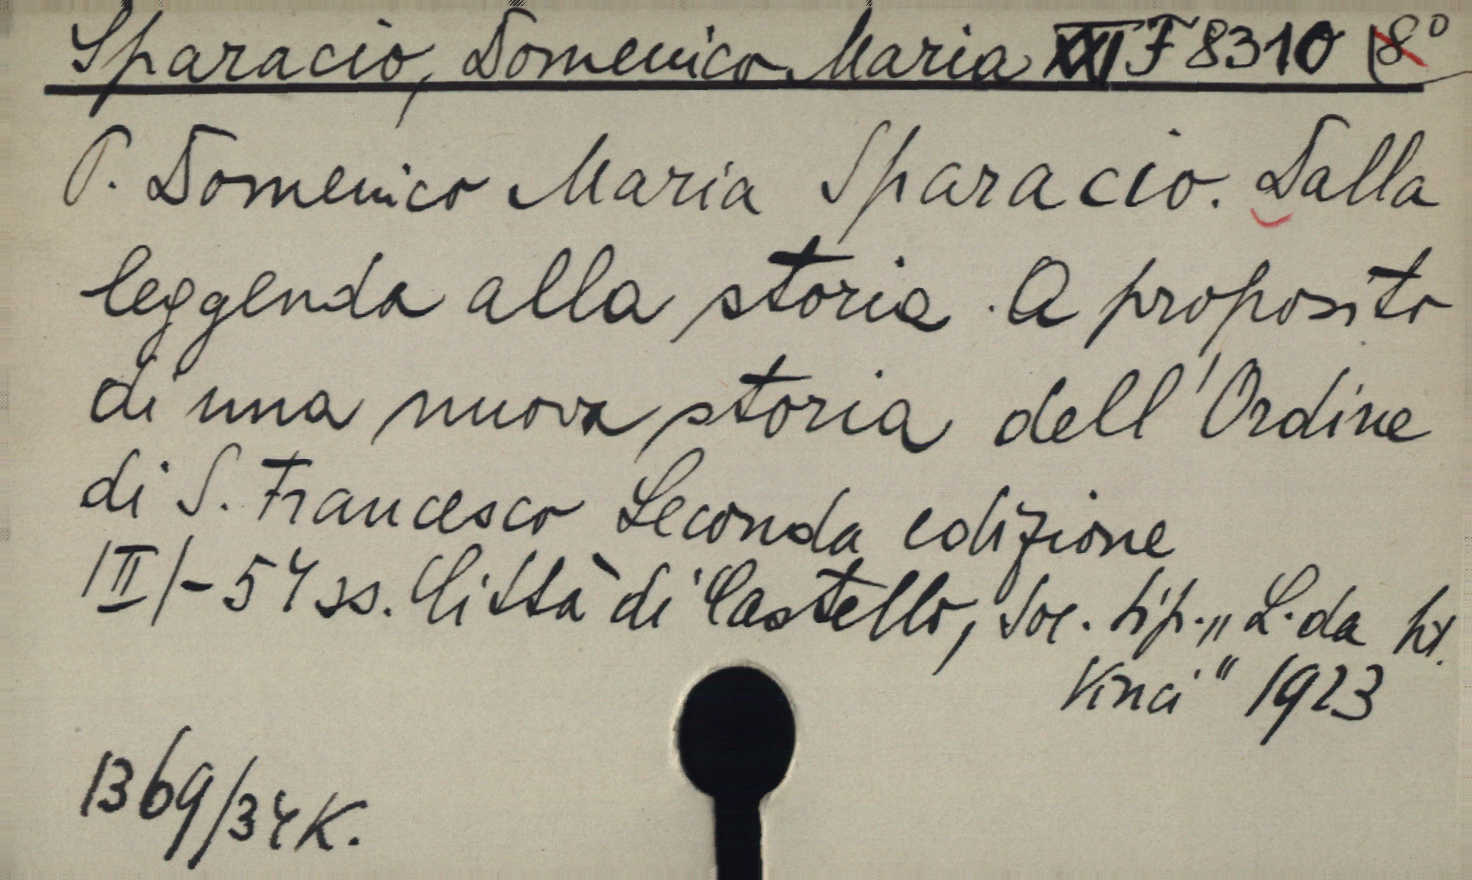 Sparacio, Domenico Maria XXI F 8310 8°
P. Domenico Maria Sparacio. Dalla
leggenda alla storia. A proposito
di una nuova storia dell'Ordine
di S. Francesco Seconda edizione
/II/-54 ss. Città di Castello, Soc. tip. „L. da
Vinci" 1923
1369/34 K.